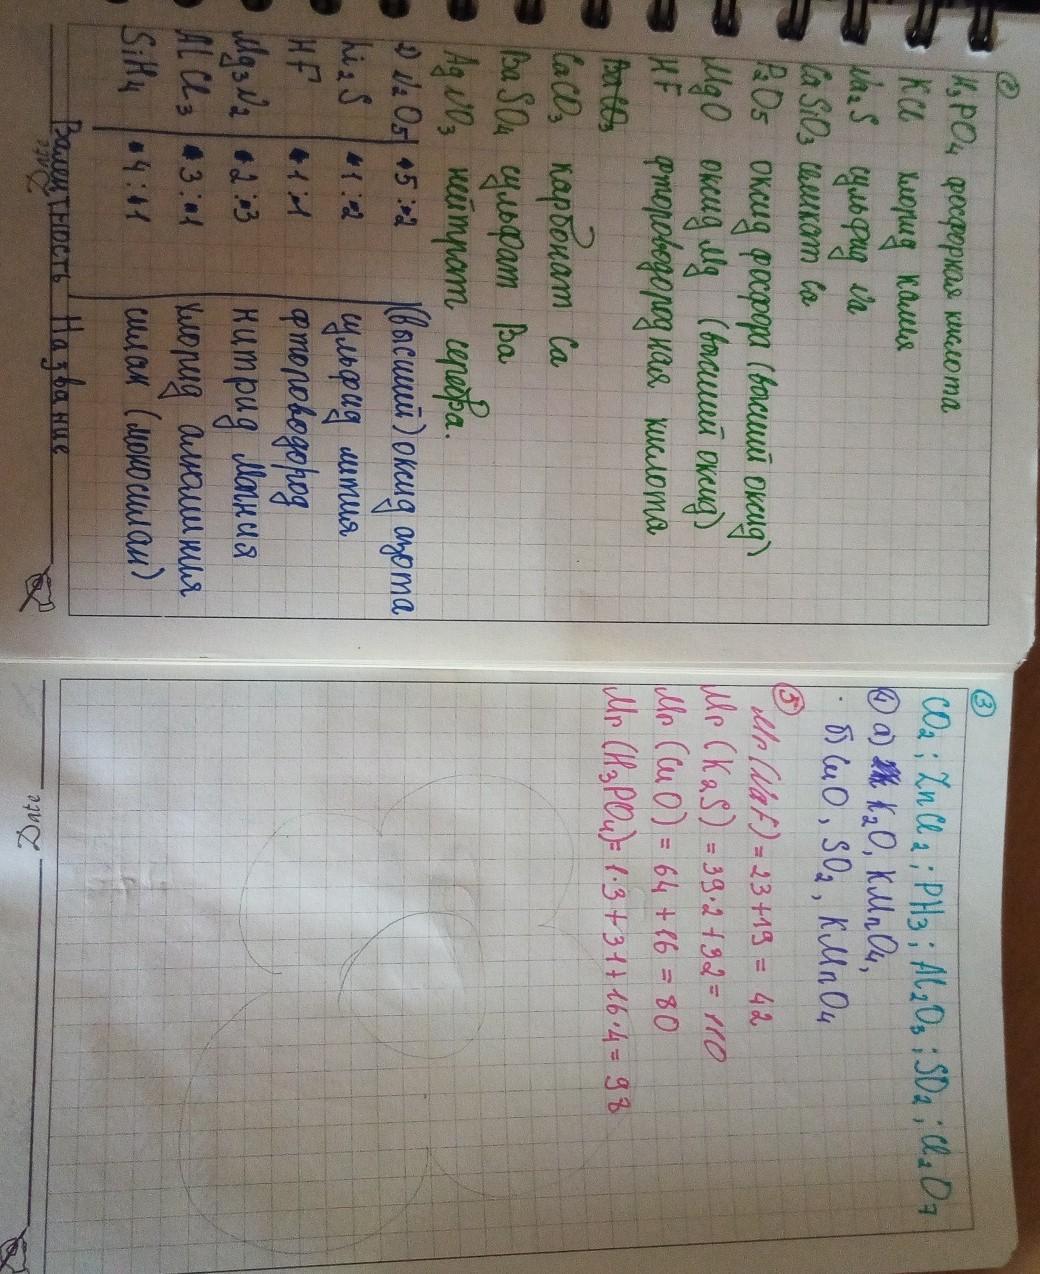 ②
H₃PO₄ фосфорная кислота
KCl хлорид калия
Na₂S сульфид Na
CaSiO₃ силикат Ca
P₂O₅ оксид фосфора (высший оксид)
MgO оксид Mg (высший оксид)
HF фтороводородная кислота
CaCO₃ карбонат Ca
BaSO₄ сульфат Ba
AgNO₃ нейтрат серебра.
2) N₂O₅ 5:2 (высший) оксид азота
Li₂S 1:2 сульфид лития
HF 1:1 фтороводород
Mg₃N₂ 2:3 нитрид магния
AlCl₃ 3:1 хлорид алюминия
SiH₄ 4:1 силан (моносилан)
Валентность Название
Date
③
CO₂; ZnCl₂; PH₃; Al₂O₃; SO₂; Cl₂O₇
④ а) K₂O, KMnO₄,
б) CuO, SO₂, KMnO₄
⑤
Mr(NaF)=23+19=42
Mr(K₂S)=39·2+32=110
Mr(CuO)=64+16=80
Mr(H₃PO₄)=1·3+31+16·4=98
Date